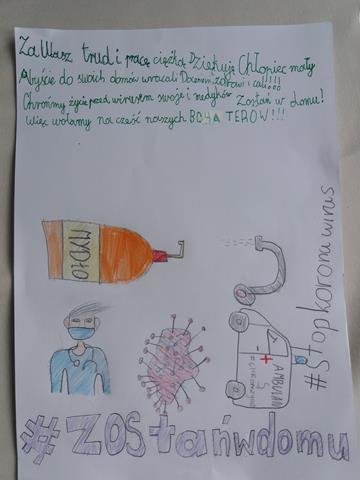 Za Wasz trud i pracę ciężką Dziękuję Chłopiec mały
Abyście do swoich domów wracali Docenmy, zdrowi i cali!!!
Chrońmy życie przed wirusem swoje i medyków Zostań w domu!
Więc wołamy na cześć naszych BOHATERÓW!!!
MYDŁO
#Stopkoronawirus
AMBULAN
S
#zostańwdomu